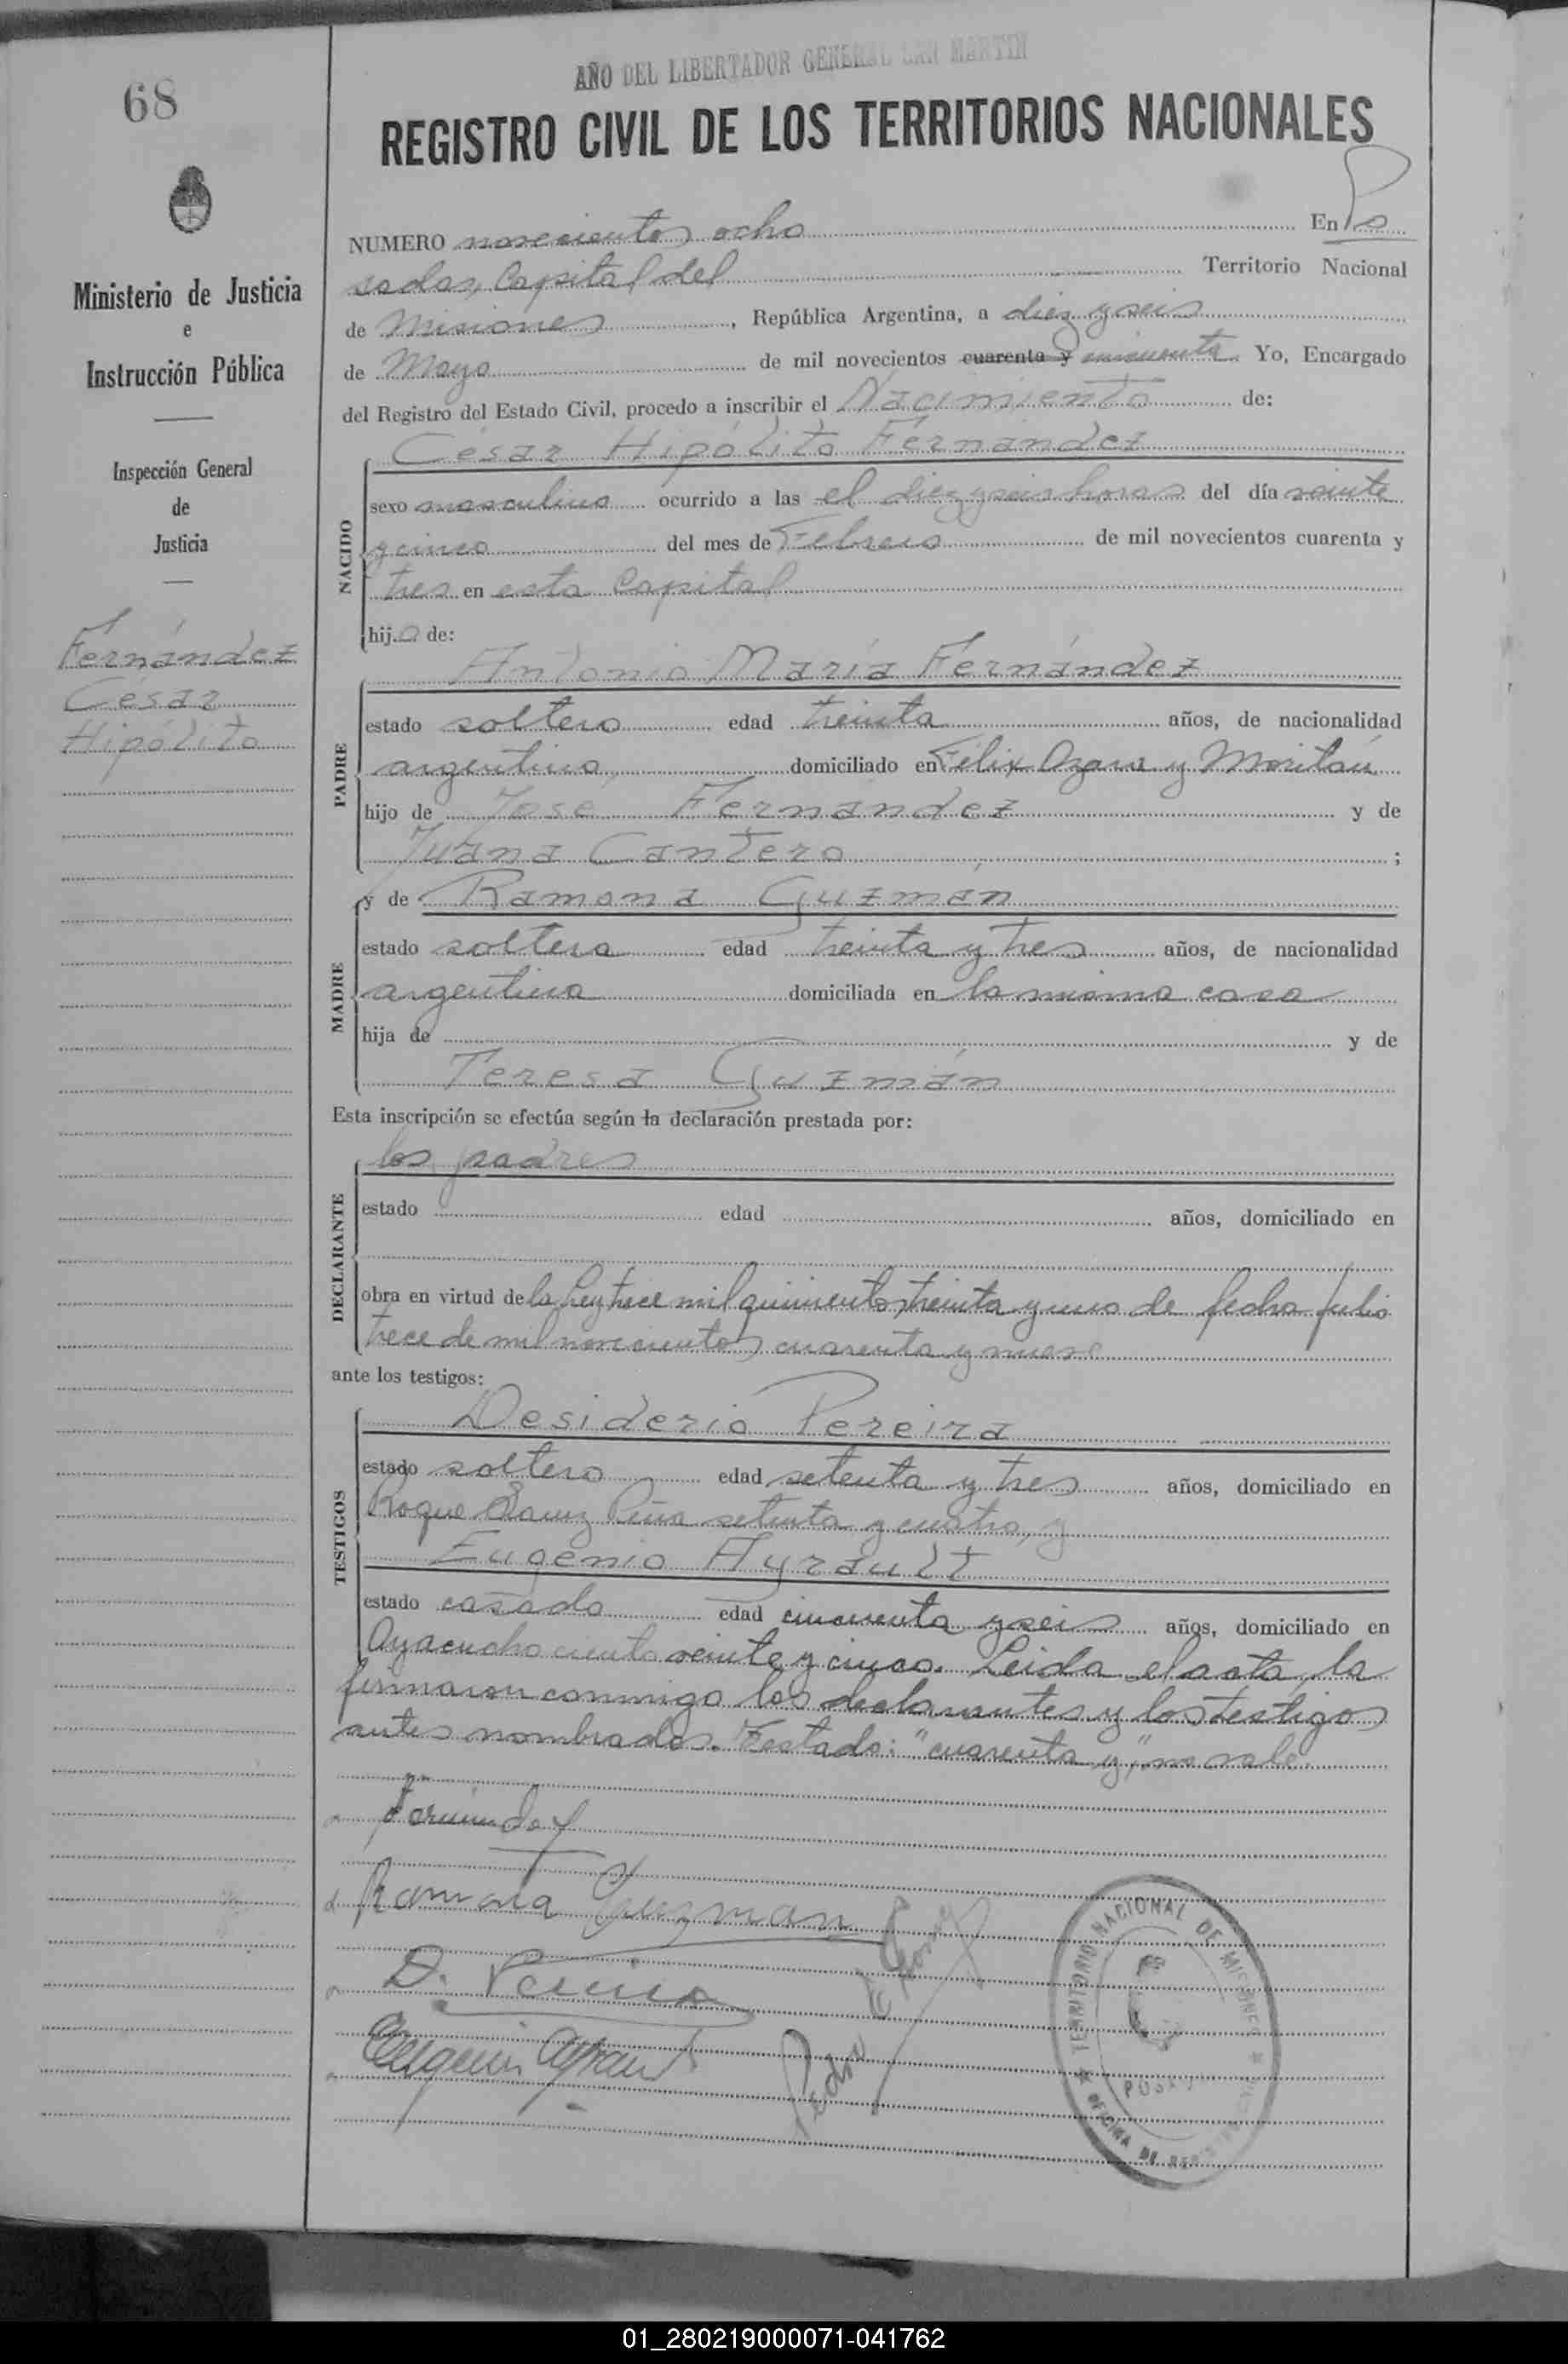 68
Ministerio de Justicia
e
Instrucción Pública
Inspección General
de
Justicia
Fernández
César
Hipólito
AÑO DEL LIBERTADOR GENERAL SAN MARTIN
REGISTRO CIVIL DE LOS TERRITORIOS NACIONALES
NUMERO novecientos ocho En Po
sadas, Capital del Territorio Nacional
de Misiones, República Argentina, a diez y seis
de Mayo de mil novecientos cuarenta y cincuenta. Yo, Encargado
del Registro del Estado Civil, procedo a inscribir el Nacimiento de:
César Hipólito Fernández
NACIDO
sexo masculino ocurrido a las el diez y seis horas del día veinte
y cinco del mes de Febrero de mil novecientos cuarenta y
tres en esta Capital
hijo de:
PADRE
Antonio María Fernández
estado soltero edad treinta años, de nacionalidad
argentino, domiciliado en Félix Azara y Moritán
hijo de José Fernández y de
Juana Cantero ;
MADRE
y de Ramona Guzmán
estado soltera edad treinta y tres años, de nacionalidad
argentina domiciliada en la misma casa
hija de y de
Teresa Guzmán
Esta inscripción se efectúa según la declaración prestada por:
DECLARANTE
los padres
estado edad años, domiciliado en
obra en virtud de la Ley trece mil quinientos treinta y uno de fecha Julio
trece de mil novecientos cuarenta y nueve
ante los testigos:
TESTIGOS
Desiderio Pereira
estado soltero edad setenta y tres años, domiciliado en
Roque Saenz Peña setenta y cuatro, y
Eugenio Ayrault
estado casado edad cincuenta y seis años, domiciliado en
Ayacucho ciento veinte y cinco. Leida el acta, la
firmaron conmigo los declarantes y los testigos
antes nombrados. Testado: "cuarenta y", no vale.
Ramona Guzman
D. Pereira
Eugenio Ayrault
TERRITORIO NACIONAL DE MISIONES
01_280219000071-041762